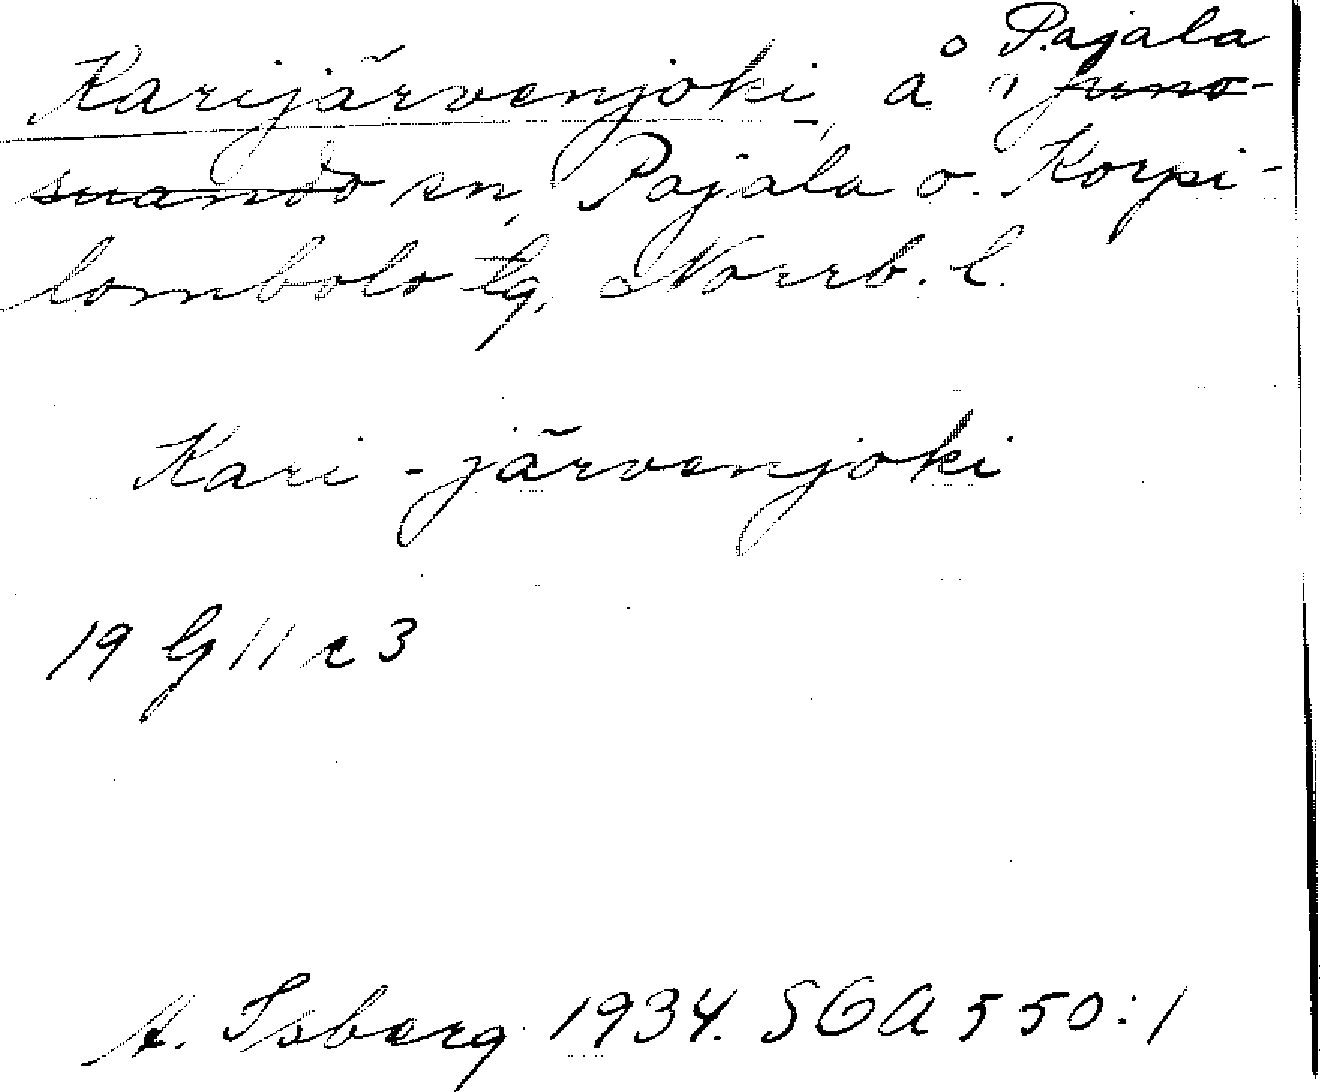 Pajala
Karijärvenjoki, å " Juno-
suando sn, Pajala o. Korpi-
lombolo tg, Norrb. l.
Kari-järvenjoki
19 Lg 11 c 3
A. Isberg 1934. SOA 550:1